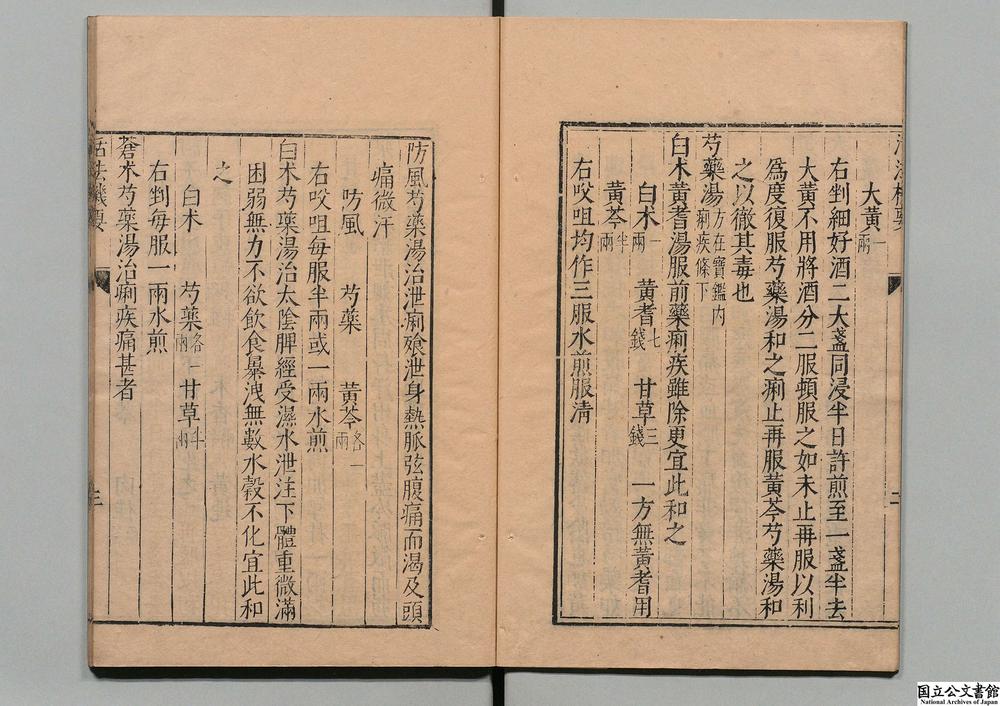 活法機要
大黃一兩
右剉細好酒二大盞同浸半日許煎至一盞半去
大黃不用將酒分二服頓服之如未止再服以利
爲度復服芍藥湯和之痢止再服黃芩芍藥湯和
之以徹其毒也
芍藥湯方在寶鑑内痢疾條下
白术黃耆湯服前藥痢疾雖除更宜此和之
白术一兩 黃耆七錢 甘草三錢 一方無黃耆用
黃芩半兩
右㕮咀均作三服水煎服清
防風芍藥湯治泄痢飱泄身熱脈弦腹痛而渴及頭
痛微汗
防風 芍藥 黃芩各一兩
右㕮咀每服半兩或一兩水煎
白术芍藥湯治太陰脾經受濕水泄注下體重微滿
困弱無力不欲飲食暴洩無數水穀不化宜此和
之
白术 芍藥各一兩 甘草半兩
右剉每服一兩水煎
蒼术芍藥湯治痢疾痛甚者
活法機要 三
国立公文書館
National Archives of Japan